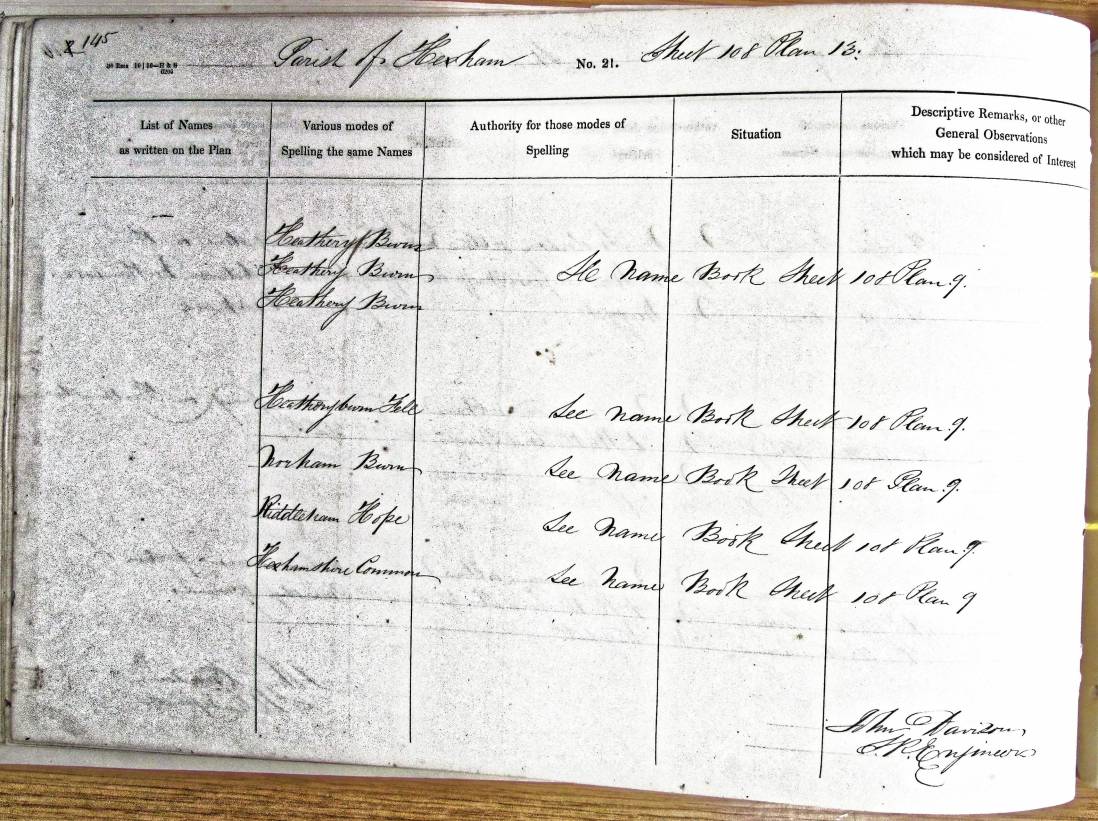 145
Parish of Hexham No. 21. Sheet 108 Plan 13.
List of Names
as written on the Plan
Various modes of
Spelling the same Names
Authority for those modes of
Spelling
Situation
Descriptive Remarks, or other
General Observations
which may be considered of Interest
Heathery Burn
Heathery Burn See Name Book Sheet 108 Plan 9.
Heathery Burn
Heatheryburn Fell See Name Book Sheet 108 Plan 9.
Norham Burn See Name Book Sheet 108 Plan 9.
Riddleham Hope See Name Book Sheet 108 Plan 9.
Hexhamshire Common See Name Book Sheet 108 Plan 9
John Davison
S.R. Engineer